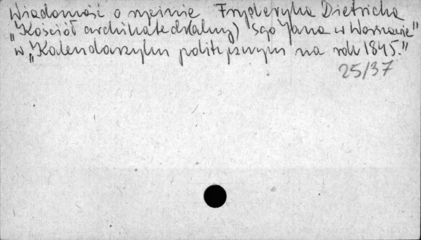 Wiadomość o rycinie Fryderyka Dietricha
„Kościół archikatedralny) Śgo Jana w Warszawie"
w „Kalendarzyku politycznym na rok 1845."
25/37